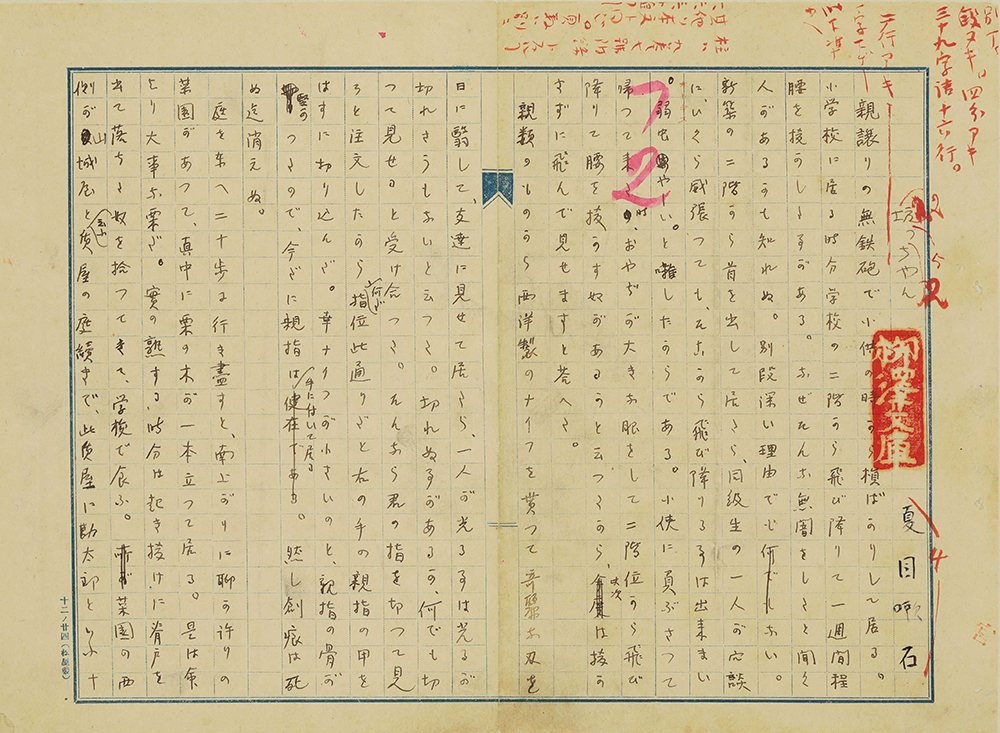 三十九字詰十六行。
二行アキ
坊っちやん
夏目漱石
柳澤文庫
72
親譲りの無鉄砲で小供の時から損ばかりして居る。
小学校に居る時分学校の二階から飛び降りて一週間程
腰を抜かした事がある。なぜそんな無闇をしたと聞く
人があるかも知れぬ。別段深い理由でも何でもない。
新築の二階から首を出して居たら、同級生の一人が冗談
に、いくら威張つても、そこから飛び降りる事は出来まい
。弱虫やーい。と囃したからである。小使に負ぶさつて
帰つて来た時、おやぢが大きな眼をして二階位から飛び
降りて腰を抜かす奴があるかと云つたから、此次は抜か
さずに飛んで見せますと答へた。
親類のものから西洋製のナイフを貰つて奇麗な刃を
日に翳して、友達に見せて居たら、一人が光る事は光るが
切れさうもないと云つた。切れぬ事があるか、何でも切
つて見せると受け合つた。そんなら君の指を切つて見
ろと注文したから、何だ指位此通りだと右の手の親指の甲を
はすに切り込んだ。幸ナイフが小さいのと、親指の骨が
堅かつたので、今だに親指は手に付いて居る。然し創痕は死
ぬ迄消えぬ。
庭を東へ二十歩に行き盡すと、南上がりに聊か許りの
菜園があつて真中に栗の木が一本立つて居る。是は命
より大事な栗だ。實の熟する時分は起き抜けに脊戸を
出て落ちた奴を拾つてきて、学校で食ふ。菜園の西
側が山城屋と云ふ質屋の庭續きで、此質屋に勘太郎といふ十
十二ノ廿四(松屋製)